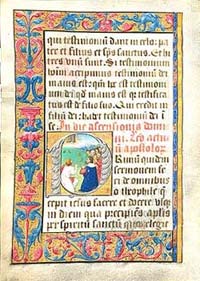 quia testimoniũ dant in celo: pa
ter et filius et sps sanctus. Et hi
tres vnũ sunt. Si testimonium
hoĩm accipimus testimoniũ dei
maius est: qm̃ hoc est testimoni
um dei qđ maius est qui testifica
tus est de filio suo. Qui credit in
filiũ dei habet testimoniũ dei in
se. In die ascensionis domi
ni. Lc̃o actuũ
apostolor
Rimũ quidem
sermonem fe
ci de omnibus
o theophile q̃
cepit iesus facere et docere vsq̃
in diem qua precipiens aplis
per spiritũ sanctũ quos elegit